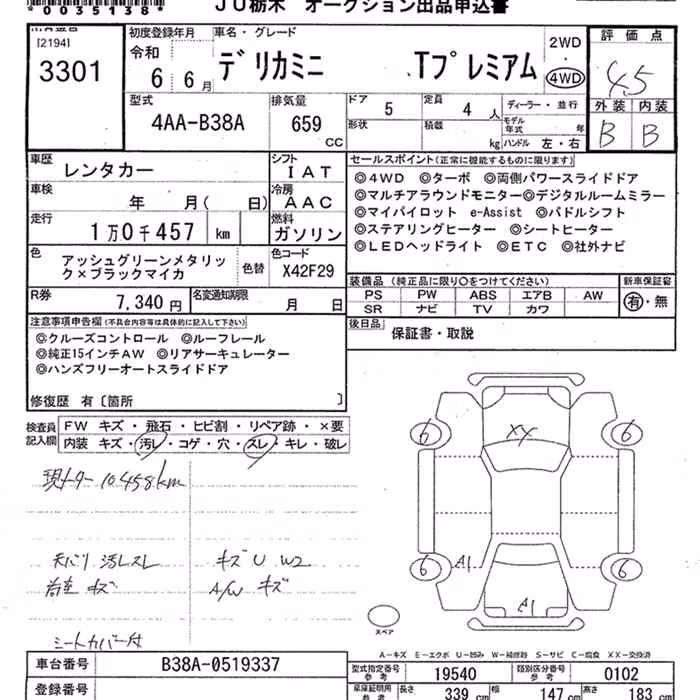 *0035138*
JU栃木 オークション出品申込書
[2194]
3301
初度登録年月
令和
6 6月
車名・グレード
デリカミニ Tプレミアム
2WD
・
4WD
評価点
4.5
外装 内装
B B
型式
4AA-B38A
排気量
659
CC
ドア 5
定員 4 人
形状
積載 kg
ディーラー・並行
モデル年式 年
ハンドル 左・右
車歴
レンタカー
シフト
IAT
車検
年 月( 日)
冷房
AAC
走行
1万0千457 km
燃料
ガソリン
色
アッシュグリーンメタリック×ブラックマイカ
色替
色コード
X42F29
R券
7,340円
名変通知期限
月 日
セールスポイント(正常に機能するものに限ります)
◎4WD ◎ターボ ◎両側パワースライドドア
◎マルチアラウンドモニター◎デジタルルームミラー
◎マイパイロット e-Assist ◎パドルシフト
◎ステアリングヒーター ◎シートヒーター
◎LEDヘッドライト ◎ETC ◎社外ナビ
装備品(純正品に限り○をつけてください)
PS PW ABS エアB AW
SR ナビ TV カワ
新車保証書
有・無
後日品
保証書・取説
注意事項申告欄(不具合内容等は具体的に記入して下さい)
◎クルーズコントロール ◎ルーフレール
◎純正15インチAW ◎リアサーキュレーター
◎ハンズフリーオートスライドドア
修復歴 有〔箇所 〕
検査員記入欄
FW キズ・飛石・ヒビ割・リペア跡・×要
内装 キズ・汚レ・コゲ・穴・スレ・キレ・破レ
現メター 10,458km
天バリ 汚レスレ
キズ U W2
A/W キズ
シートカバー付
XX
6 6
6 6
A1
A1
スペア
A-キズ E-エクボ U-凹み W-補修跡 S-サビ C-腐食 XX-交換済
車台番号
B38A-0519337
登録番号
型式指定番号 参考
19540
類別区分番号 参考
0102
長さ 339 cm
幅 147 cm
高さ 183 cm